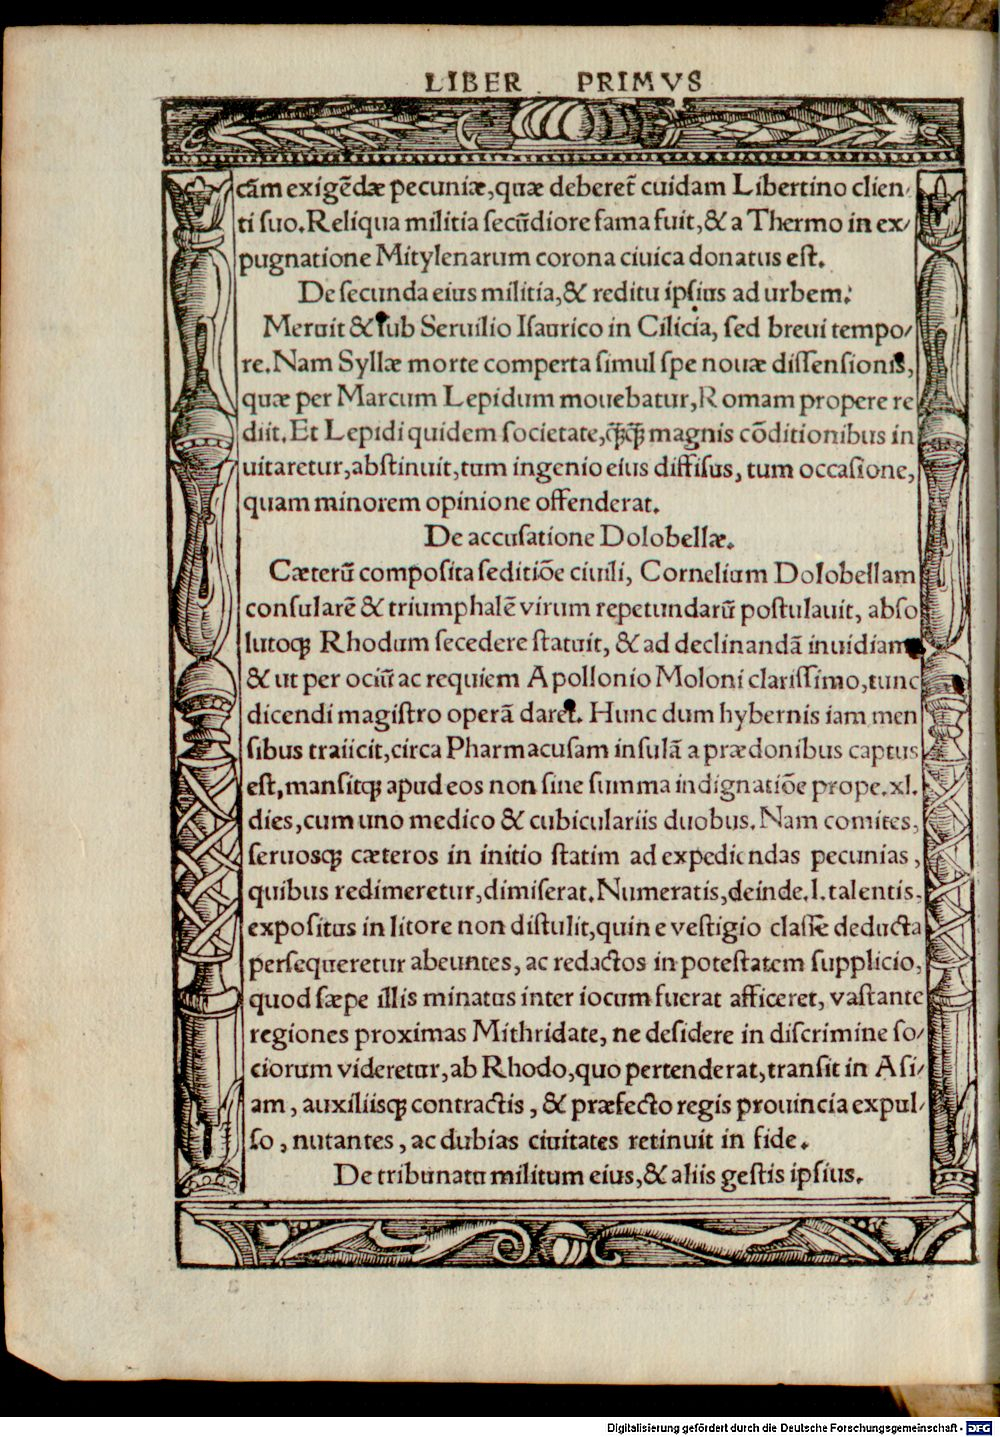 LIBER PRIMVS
cãm exigẽdæ pecuniæ,quæ deberet̃ cuidam Libertino clien-
ti suo.Reliqua militia secũdiore fama fuit,& a Thermo in ex-
pugnatione Mitylenarum corona ciuica donatus est.
De secunda eius militia,& reditu ipsius ad urbem.
Meruit & sub Seruilio Isaurico in Cilicia, sed breui tempo-
re.Nam Syllæ morte comperta simul spe nouæ dissensionis,
quæ per Marcum Lepidum mouebatur,Romam propere re
diit.Et Lepidi quidem societate,q̃q̃ magnis cõditionibus in
uitaretur,abstinuit,tum ingenio eius diffisus, tum occasione,
quam minorem opinione offenderat.
De accusatione Dolobellæ.
Cæterũ composita seditiõe ciuili, Cornelium Dolobellam
consularẽ & triumphalẽ virum repetundarũ postulauit, abso
lutoq; Rhodum secedere statuit, & ad declinandã inuidiam
& ut per ociũ ac requiem Apollonio Moloni clarissimo,tunc
dicendi magistro operã daret. Hunc dum hybernis iam men
sibus traiicit,circa Pharmacusam insulã a prædonibus captus
est,mansitq; apud eos non sine summa indignatiõe prope.xl.
dies,cum uno medico & cubiculariis duobus.Nam comites,
seruosq; cæteros in initio statim ad expediendas pecunias,
quibus redimeretur,dimiserat.Numeratis,deinde.l.talentis,
expositus in litore non distulit,quin e vestigio classe deducta
persequeretur abeuntes, ac redactos in potestatem supplicio,
quod sæpe illis minatus inter iocum fuerat afficeret, vastante
regiones proximas Mithridate, ne desidere in discrimine so-
ciorum videretur,ab Rhodo,quo pertenderat,transit in Asi-
am, auxiliisq; contractis, & præfecto regis prouincia expul-
so, nutantes, ac dubias ciuitates retinuit in fide.
De tribunatu militum eius,& aliis gestis ipsius.
Digitalisierung gefördert durch die Deutsche Forschungsgemeinschaft - DFG